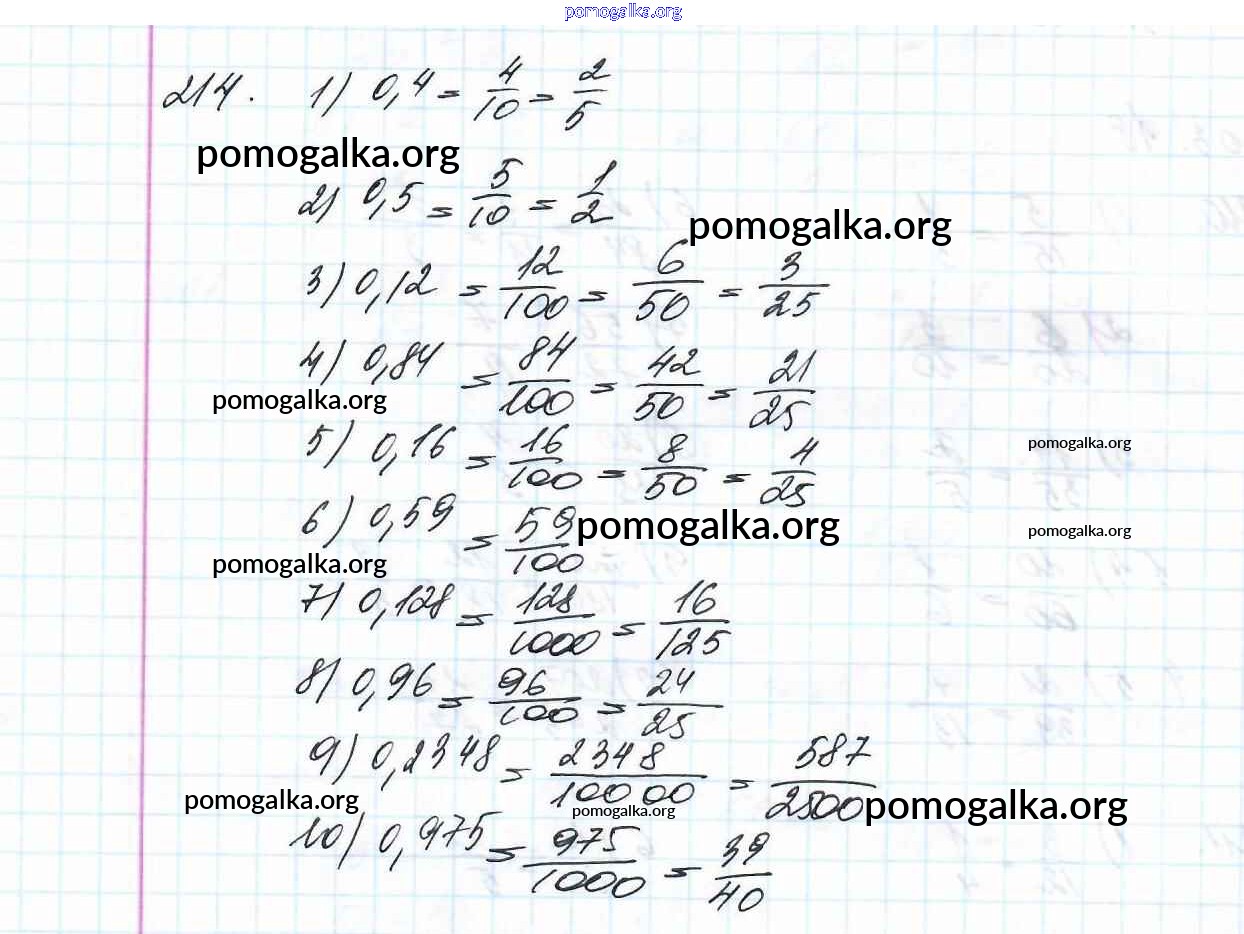 pomogalka.org
214. 1) 0,4 = 4/10 = 2/5
pomogalka.org
2) 0,5 = 5/10 = 1/2
pomogalka.org
3) 0,12 = 12/100 = 6/50 = 3/25
4) 0,84 = 84/100 = 42/50 = 21/25
pomogalka.org
5) 0,16 = 16/100 = 8/50 = 4/25
pomogalka.org
6) 0,59 = 59/100
pomogalka.org
pomogalka.org
pomogalka.org
7) 0,128 = 128/1000 = 16/125
8) 0,96 = 96/100 = 24/25
9) 0,2348 = 2348/10000 = 587/2500
pomogalka.org
pomogalka.org
pomogalka.org
10) 0,975 = 975/1000 = 39/40